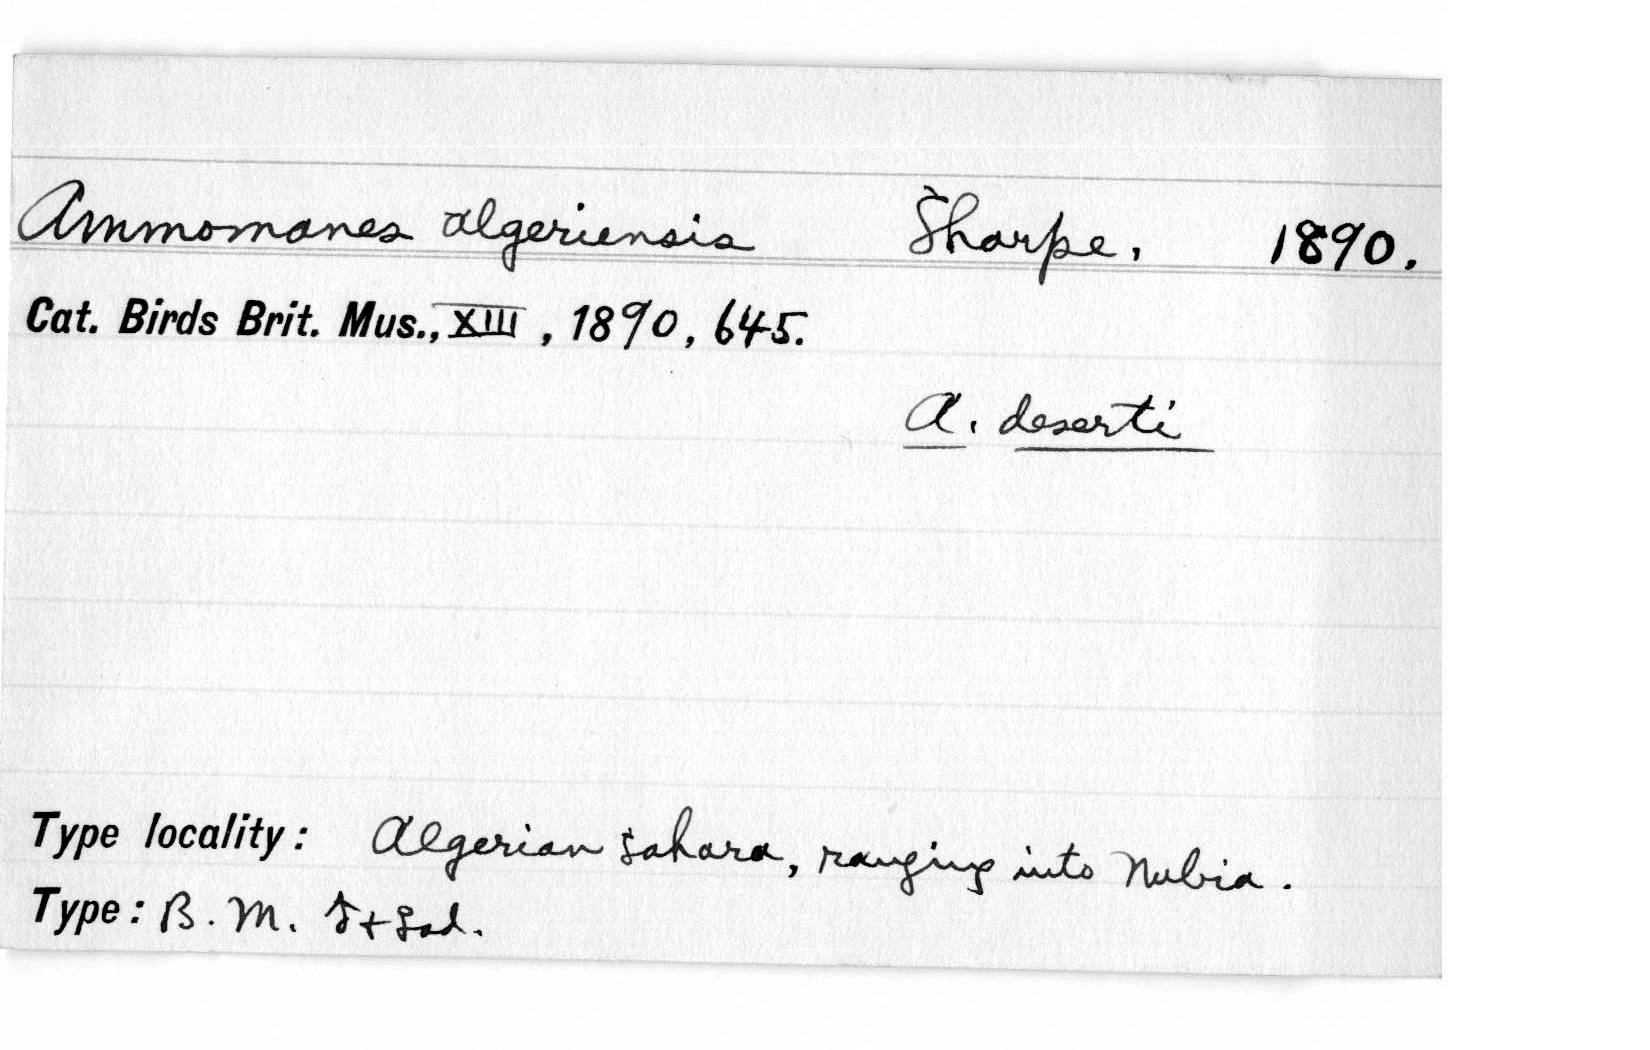 Ammomanes algeriensis Sharpe, 1890.
Cat. Birds Brit. Mus., XIII, 1890, 645.
A. deserti
Type locality: Algerian Sahara, ranging into Nubia.
Type: B. M. ♂ + ad.